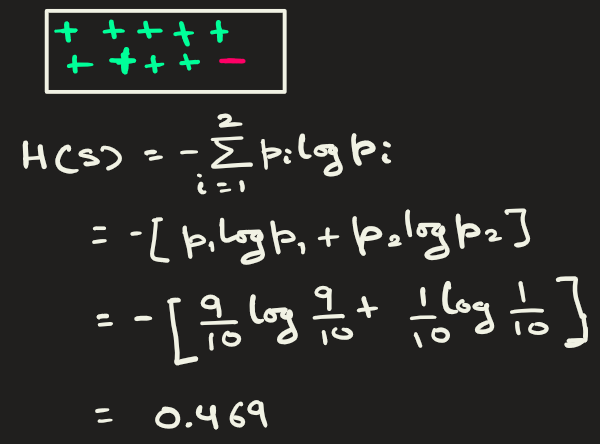 + + + + +
+ + + + -
H(S) = - ∑_{i=1}^{2} p_i log p_i
= -[ p_1 log p_1 + p_2 log p_2 ]
= - [ 9/10 log 9/10 + 1/10 log 1/10 ]
= 0.469